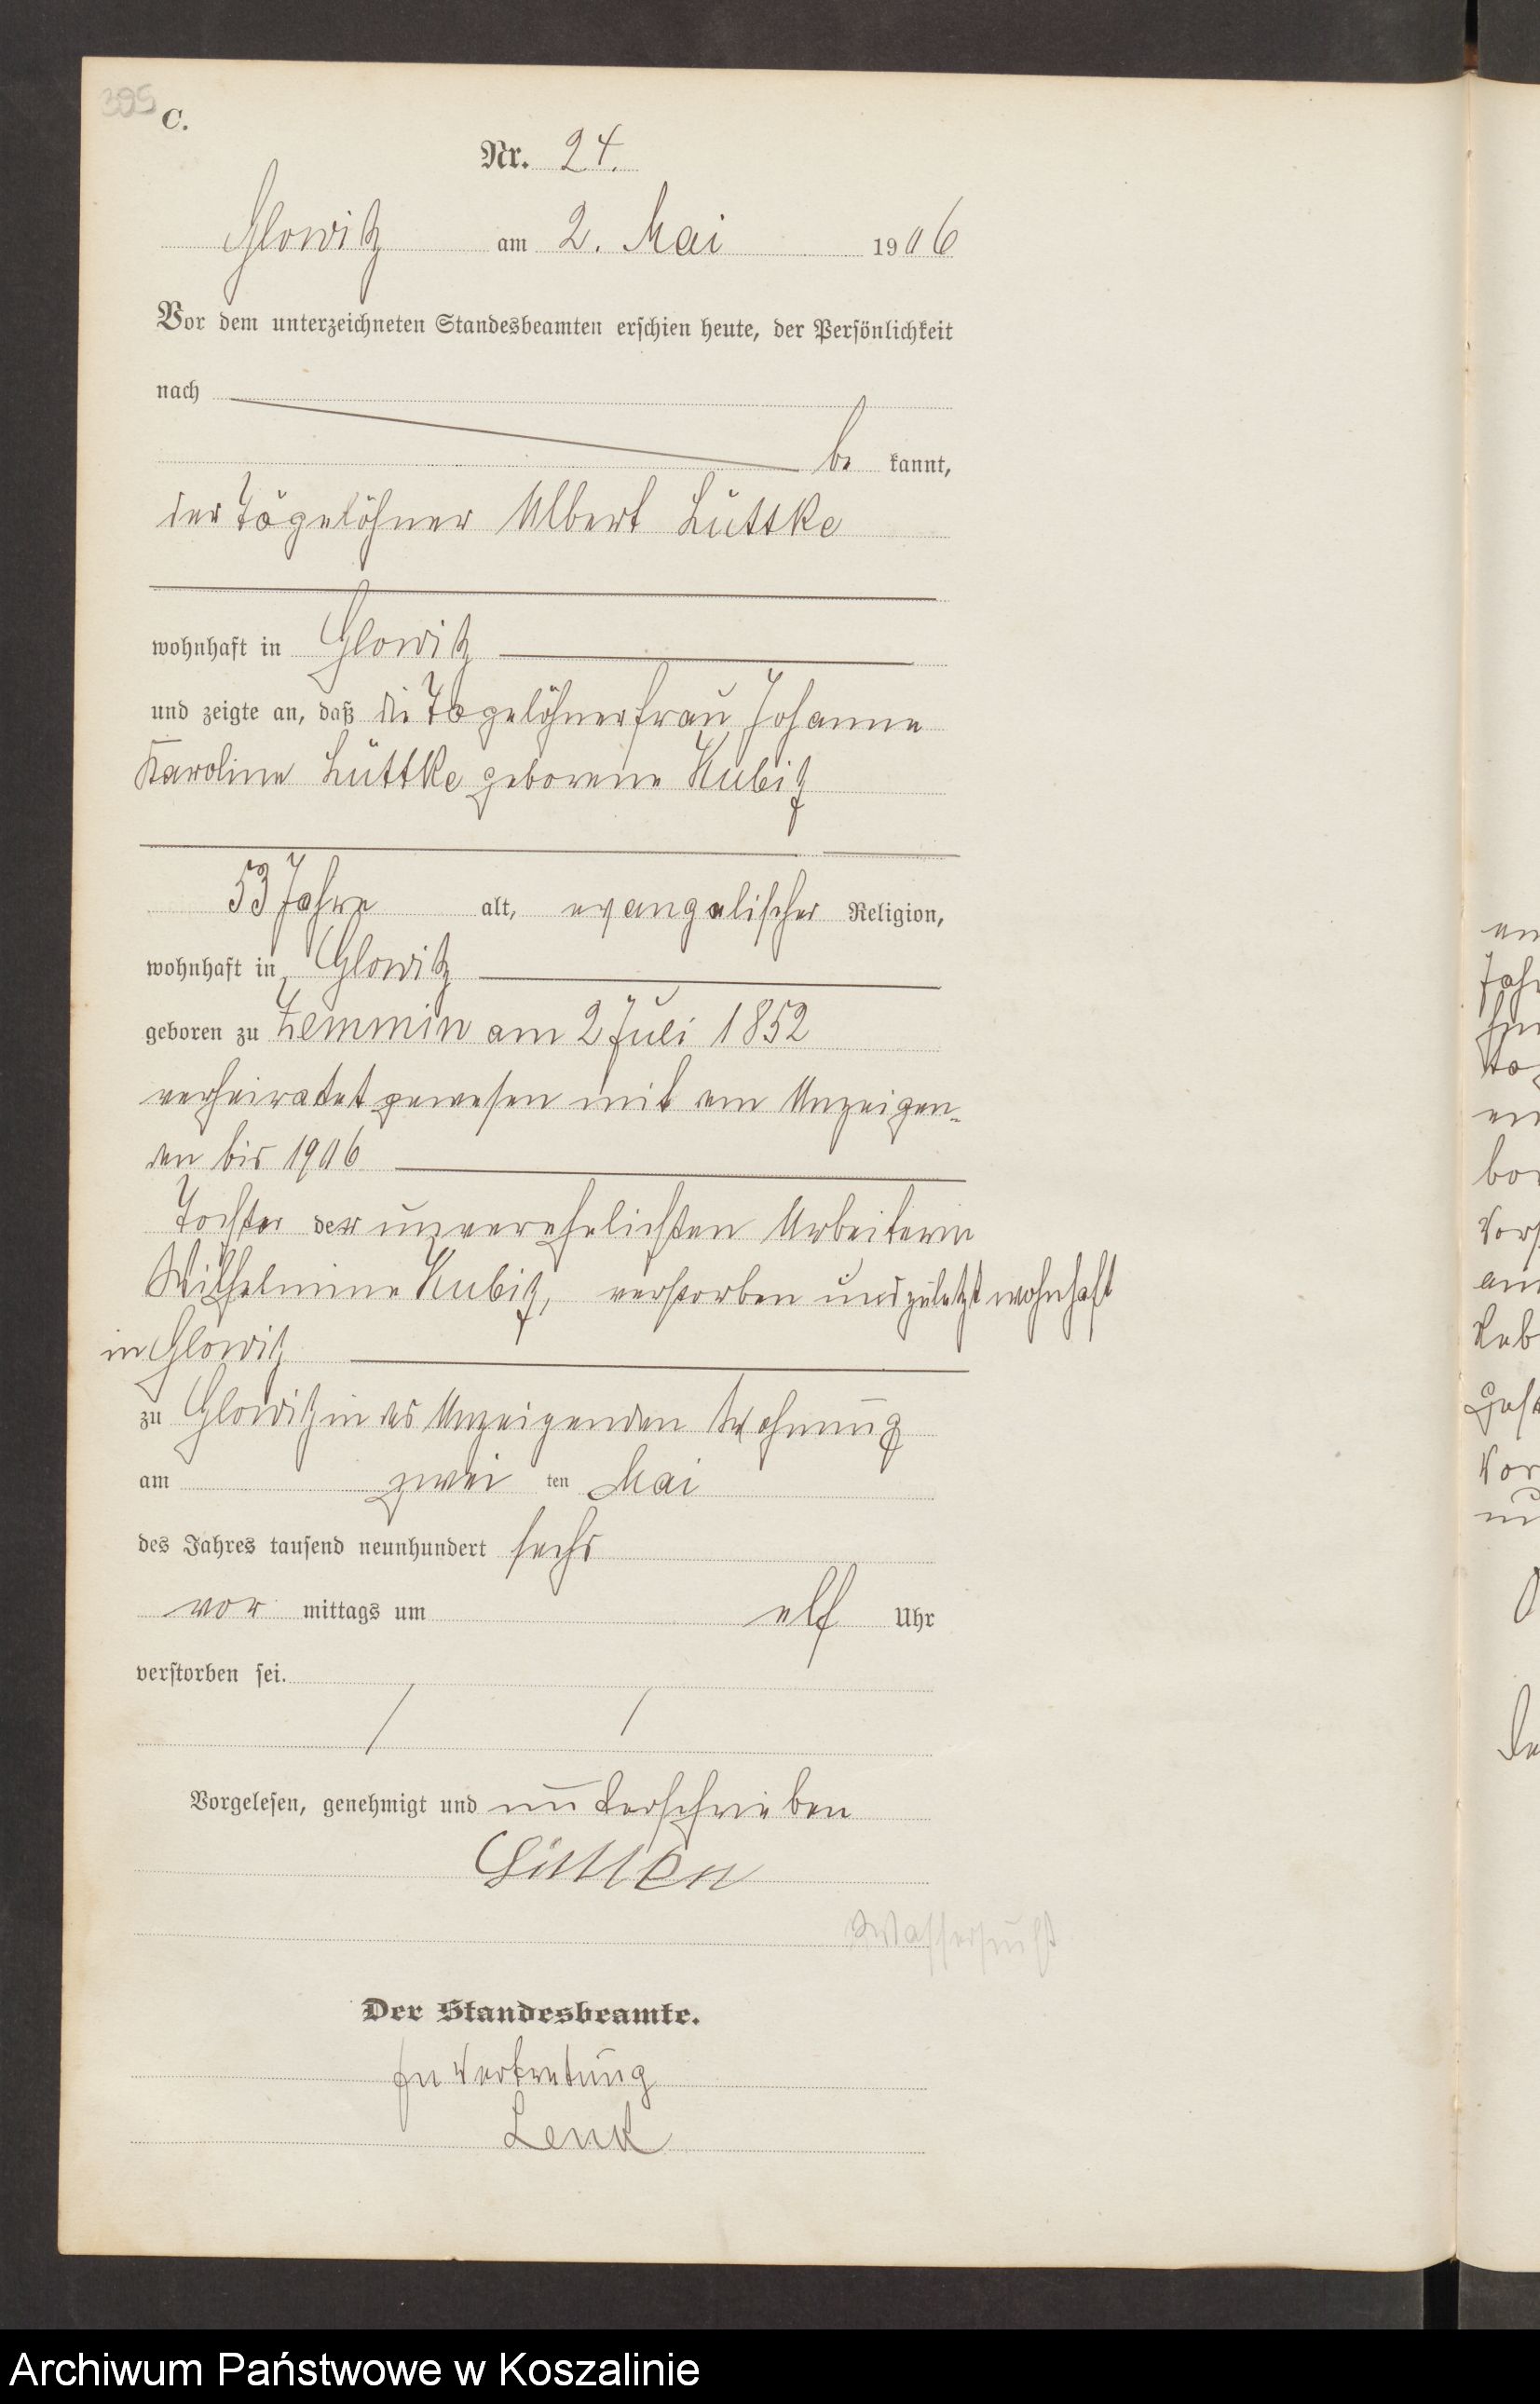 395
C.
Nr. 24.
Glowitz am 2. Mai 1906
Vor dem unterzeichneten Standesbeamten erschien heute, der Persönlichkeit
nach
be kannt,
der Tagelöhner Albert Lüttke
wohnhaft in Glowitz
und zeigte an, daß die Tagelöhnerfrau Johanne
Karoline Lüttke geborene Kubitz
53 Jahre alt, evangelischer Religion,
wohnhaft in Glowitz
geboren zu Zemmin am 2 Juli 1852
verheiratet gewesen mit em Anzeigen-
den bis 1906
Tochter der unverehelichten Arbeiterin
Wilhelmine Kubitz, verstorben und zuletzt wohnhaft
in Glowitz
zu Glowitz in des Anzeigenden Wohnung
am zwei ten Mai
des Jahres tausend neunhundert sechs
vor mittags um elf Uhr
verstorben sei.
Vorgelesen, genehmigt und unterschrieben
Wassersucht
Der Standesbeamte.
In Vertretung
Lenk
Archiwum Państwowe w Koszalinie